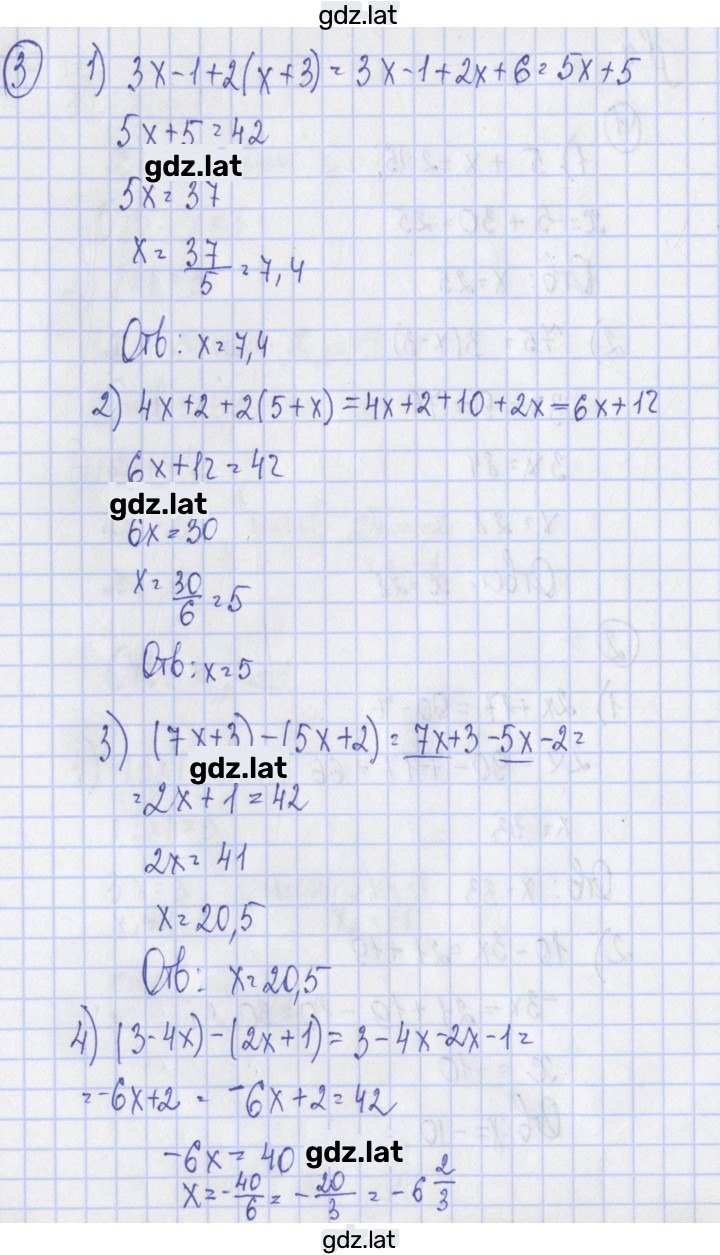 gdz.lat
3 1) 3x-1+2(x+3)=3x-1+2x+6=5x+5
5x+5=42
gdz.lat
5x=37
x=37/5=7,4
Отв: x=7,4
2) 4x+2+2(5+x)=4x+2+10+2x=6x+12
6x+12=42
gdz.lat
6x=30
x=30/6=5
Отв: x=5
3) (7x+3)-(5x+2)=7x+3-5x-2=
gdz.lat
=2x+1=42
2x=41
x=20,5
Отв: x=20,5
4) (3-4x)-(2x+1)=3-4x-2x-1=
=-6x+2= -6x+2=42
-6x=40 gdz.lat
x=-40/6=-20/3=-6 2/3
gdz.lat